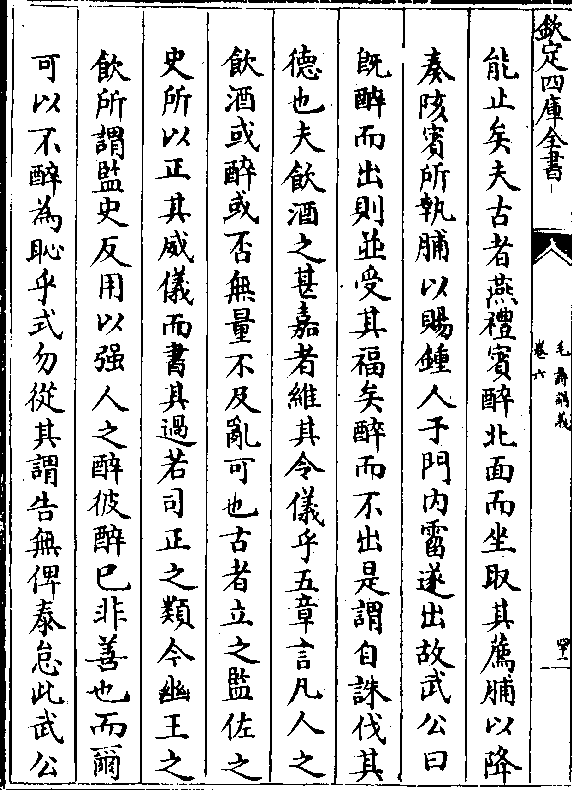 欽定四庫全書
毛詩講義
卷六
能止矣夫古者燕禮賓醉北面而坐取其薦脯以降
奏陔賓所執脯以賜鍾人于門内霤遂出故武公曰
既醉而出則並受其福矣醉而不出是謂自誅伐其
德也夫飲酒之甚嘉者維其令儀乎五章言凡人之
飲酒或醉或否無量不及亂可也古者立之監佐之
史所以正其威儀而書其過若司正之類今幽王之
飲所謂監史反用以强人之醉彼醉已非善也而爾
可以不醉為恥乎式勿從其謂告無俾泰怠此武公